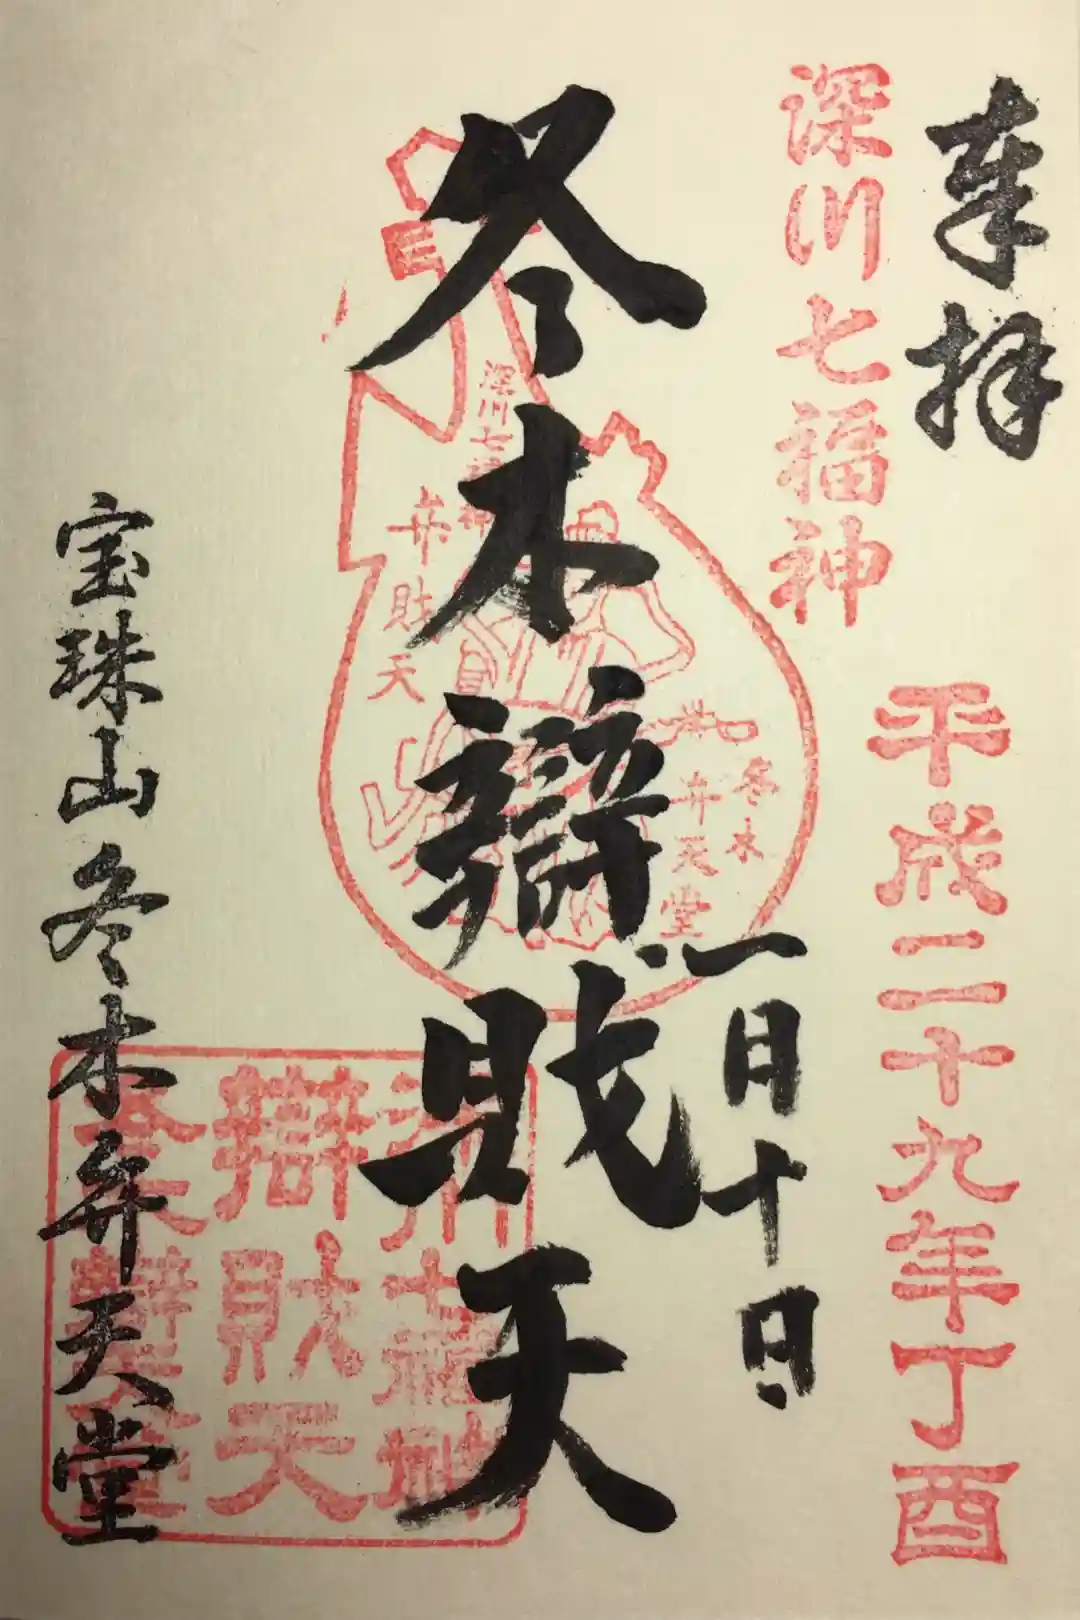 奉拝
深川七福神
平成二十九年丁酉
一月十日
冬木辯財天
深川七福神
弁財天
冬木
弁天堂
深川七福神
辯財天
冬木辯天堂
宝珠山冬木弁天堂